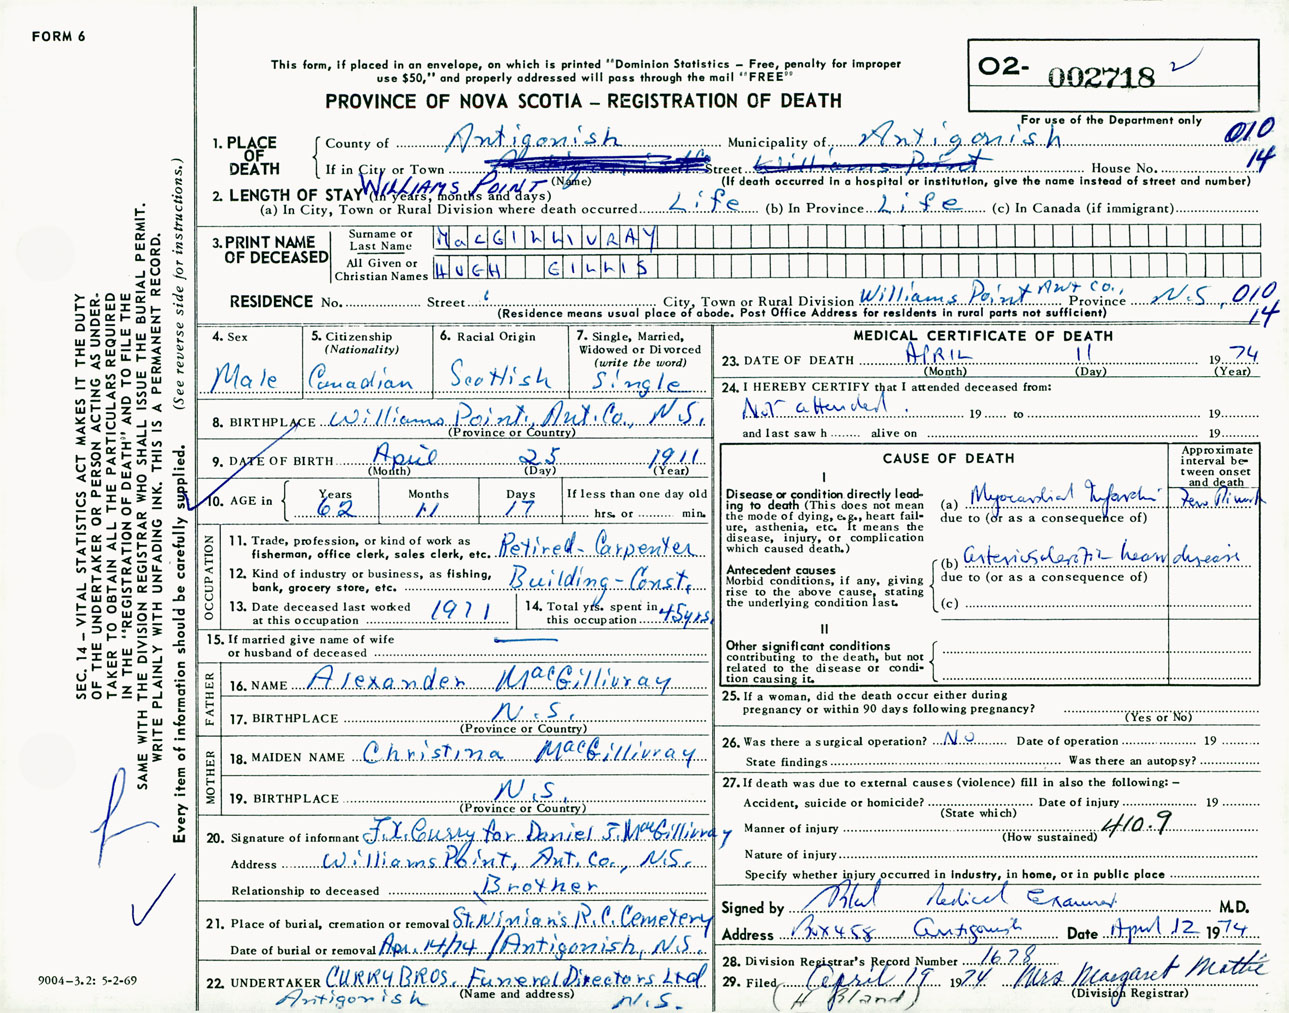 FORM 6
This form, if placed in an envelope, on which is printed "Dominion Statistics – Free, penalty for improper
use $50," and properly addressed will pass through the mail "FREE"
PROVINCE OF NOVA SCOTIA – REGISTRATION OF DEATH
O2- 002718
For use of the Department only
010
14
1. PLACE OF DEATH
County of Antigonish Municipality of Antigonish
If in City or Town Street Williams Point House No.
WILLIAMS POINT (Name) (If death occurred in a hospital or institution, give the name instead of street and number)
2. LENGTH OF STAY (In years, months and days)
(a) In City, Town or Rural Division where death occurred Life (b) In Province Life (c) In Canada (if immigrant)
3. PRINT NAME OF DECEASED
Surname or Last Name MacGILLIVRAY
All Given or Christian Names HUGH GILLIS
RESIDENCE No. Street City, Town or Rural Division Williams Point Ant Co., Province N.S, 010
14
(Residence means usual place of abode. Post Office Address for residents in rural parts not sufficient)
4. Sex
Male
5. Citizenship
(Nationality)
Canadian
6. Racial Origin
Scottish
7. Single, Married,
Widowed or Divorced
(write the word)
Single
8. BIRTHPLACE Williams Point, Ant. Co., N.S.
(Province or Country)
9. DATE OF BIRTH April 25 1911
(Month) (Day) (Year)
10. AGE in Years 62 Months 11 Days 17 If less than one day old
hrs. or min.
OCCUPATION
11. Trade, profession, or kind of work as
fisherman, office clerk, sales clerk, etc. Retired-Carpenter
12. Kind of industry or business, as fishing,
bank, grocery store, etc. Building-Const.
13. Date deceased last worked
at this occupation 1971
14. Total yrs. spent in
this occupation 45yrs.
15. If married give name of wife
or husband of deceased
FATHER
16. NAME Alexander MacGillivray
17. BIRTHPLACE N.S.
(Province or Country)
MOTHER
18. MAIDEN NAME Christina MacGillivray
19. BIRTHPLACE N.S.
(Province or Country)
20. Signature of informant J.X. Curry for Daniel J. MacGillivray
Address Williams Point, Ant. Co., N.S.
Relationship to deceased Brother
21. Place of burial, cremation or removal St. Ninian's R.C. Cemetery
Date of burial or removal Apr. 14/74 / Antigonish, N.S.
22. UNDERTAKER CURRY BROS. Funeral Directors Ltd
(Name and address)
Antigonish N.S.
MEDICAL CERTIFICATE OF DEATH
23. DATE OF DEATH APRIL 11 1974
(Month) (Day) (Year)
24. I HEREBY CERTIFY that I attended deceased from:
Not attended. 19 to 19
and last saw h alive on 19
CAUSE OF DEATH
Approximate interval between onset and death
I
Disease or condition directly leading to death (This does not mean the mode of dying, e.g., heart failure, asthenia, etc. It means the disease, injury, or complication which caused death.)
(a) Myocardial Infarction Few Minutes
due to (or as a consequence of)
Antecedent causes
Morbid conditions, if any, giving rise to the above cause, stating the underlying condition last.
(b) arteriosclerotic heart disease
due to (or as a consequence of)
(c)
II
Other significant conditions
contributing to the death, but not related to the disease or condition causing it.
25. If a woman, did the death occur either during
pregnancy or within 90 days following pregnancy?
(Yes or No)
26. Was there a surgical operation? No Date of operation 19
State findings Was there an autopsy?
27. If death was due to external causes (violence) fill in also the following: –
Accident, suicide or homicide? Date of injury 19
(State which)
Manner of injury 410.9
(How sustained)
Nature of injury
Specify whether injury occurred in industry, in home, or in public place
Signed by Medical Examiner M.D.
Address Box 458 Antigonish Date April 12 1974
28. Division Registrar's Record Number 1678
29. Filed April 19 1974 Mrs Margaret Mattie
(H Bland) (Division Registrar)
SEC. 14 – VITAL STATISTICS ACT MAKES IT THE DUTY
OF THE UNDERTAKER OR PERSON ACTING AS UNDER-
TAKER TO OBTAIN ALL THE PARTICULARS REQUIRED
IN THE "REGISTRATION OF DEATH" AND TO FILE THE
SAME WITH THE DIVISION REGISTRAR WHO SHALL ISSUE THE BURIAL PERMIT.
WRITE PLAINLY WITH UNFADING INK. THIS IS A PERMANENT RECORD.
Every item of information should be carefully supplied. (See reverse side for instructions.)
9004-3.2: 5-2-69